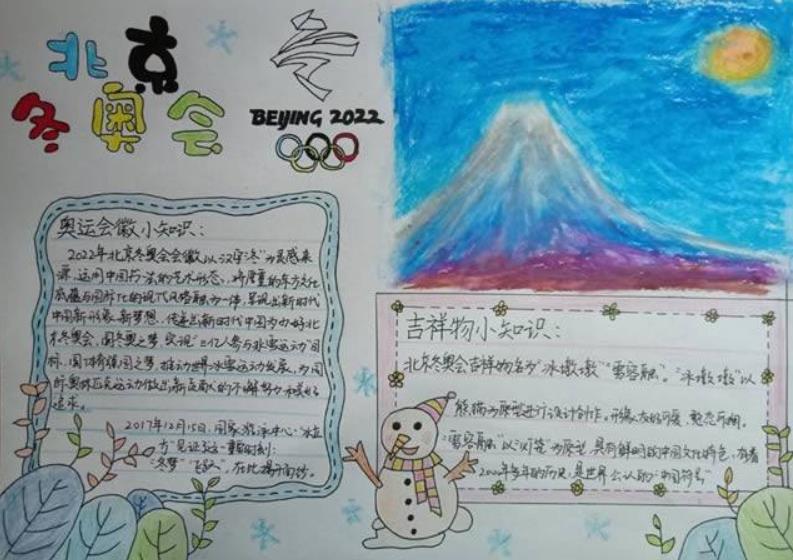 北京
冬奥会
BEIJING 2022
奥运会徽小知识：
2022年北京冬奥会会徽以汉字"冬"为灵感来
源，运用中国书法的艺术形态，将厚重的东方文化
底蕴与国际化的现代风格融为一体，呈现出新时代
中国新形象、新梦想，传递出新时代中国为办好北
京冬奥会，圆冬奥之梦，实现"三亿人参与冰雪运动"目
标，圆体育强国之梦，推动世界冰雪运动发展，为国
际奥林匹克运动做出新贡献的不懈努力和美好
追求。
2017年12月15日，国家游泳中心"水立
方"见证这一重要时刻：
"冬梦" 在此揭开面纱。
吉祥物小知识：
北京冬奥会吉祥物名为"冰墩墩""雪容融"。"冰墩墩"以
熊猫为原型进行设计创作，形象友好可爱、憨态可掬。
"雪容融"以"灯笼"为原型，具有鲜明的中国文化特色，有着
2000年多年的历史，是世界公认的"中国符号"